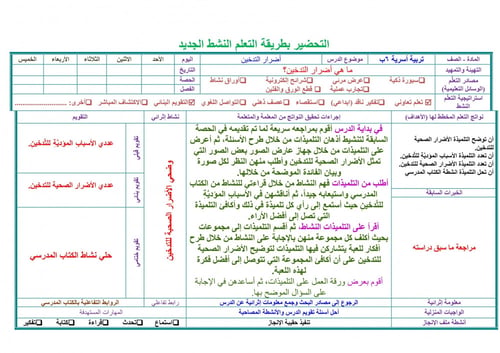 التحضير بطريقة التعلم النشط الجديد
المادة ـ الصف
تربية أسرية ٦ب
موضوع الدرس
أضرار التدخين
اليوم
الأحد
الاثنين
الثلاثاء
الأربعاء
الخميس
التهيئة والتمهيد
ما هي أضرار التدخين؟
التاريخ
مصادر التعلم
(الوسائل التعليمية)
سبورة ذكية
عرض مرئي
شرائح إلكترونية
أوراق نشاط
تجارب عملية
قطع الورق والفلين
الحصة
الفصل
استراتيجية التعلم
النشط
تعلم تعاوني
تفكير ناقد (إبداعي)
استقصاء
عصف ذهني
التواصل اللغوي
التقويم البنائي
الاكتشاف المباشر
أخرى:
نواتج التعلم المخطط لها (الأهداف)
إجراءات تحقيق النواتج من المعلمة والمتعلمة
نشاط إثرائي
التقويم
أن توضح التلميذة الأضرار الصحية
للتدخين.
أن تعدد التلميذة الأضرار الصحية
أن تعدد التلميذة الأسباب المؤدية
أن تحل التلميذة أنشطة الكتاب المدرسي
الخبرات السابقة
مراجعة ما سبق دراسته
في بداية الدرس أقوم بمراجعة سريعة لما تم تقديمه في الحصة
السابقة لتنشيط أذهان التلميذات من خلال طرح الأسئلة، ثم أعرض
على التلميذات من خلال جهاز عارض الصور بعض الصور التي
تمثل الأضرار الصحية للتدخين وأطلب منهن النظر لكل صورة
وبيان الفائدة الموضحة من خلالها.
أطلب من التلميذات فهم النشاط من خلال قراءتي للنشاط من الكتاب
المدرسي واستيعابه جيداً، ثم أناقشهن في الأسباب المؤدية
للتدخين حيث أستمع إلى رأي كل تلميذة في ذلك وأكافئ التلميذة
التي تصل إلى أفضل الآراء.
أقرأ على التلميذات النشاط، ثم أقسم التلميذات إلى مجموعات
بحيث أكلف كل مجموعة منهن بالإجابة على النشاط من خلال طرح
أفكار للعبة يتشاركن فيها التلميذات لتوضيح الأضرار الصحية
للتدخين على أن أكافئ المجموعة التي تتوصل إلى أفضل فكرة
لهذه اللعبة.
أقوم بعرض ورقة العمل على التلميذات، ثم أساعدهن في الإجابة
على السؤال الموضح بها.
وضحي الأضرار الصحية للتدخين
تقويم قبلي
عددي الأسباب المؤدية للتدخين.
تقويم بنائي
عددي الأضرار الصحية للتدخين.
تقويم ختامي
حلي نشاط الكتاب المدرسي
معلومة إثرائية
الرجوع إلى مصادر البحث وجمع معلومات إثرائية عن الدرس
رابط تفاعلي
الروابط التفاعلية بالكتاب المدرسي
الواجبات المنزلية
أحل أسئلة تقويم الدرس والأنشطة المصاحبة
المهارات المستهدفة
أنشطة ملف الإنجاز
تنفيذ حقيبة الإنجاز
استماع
تحدث
قراءة
كتابة
تفكير